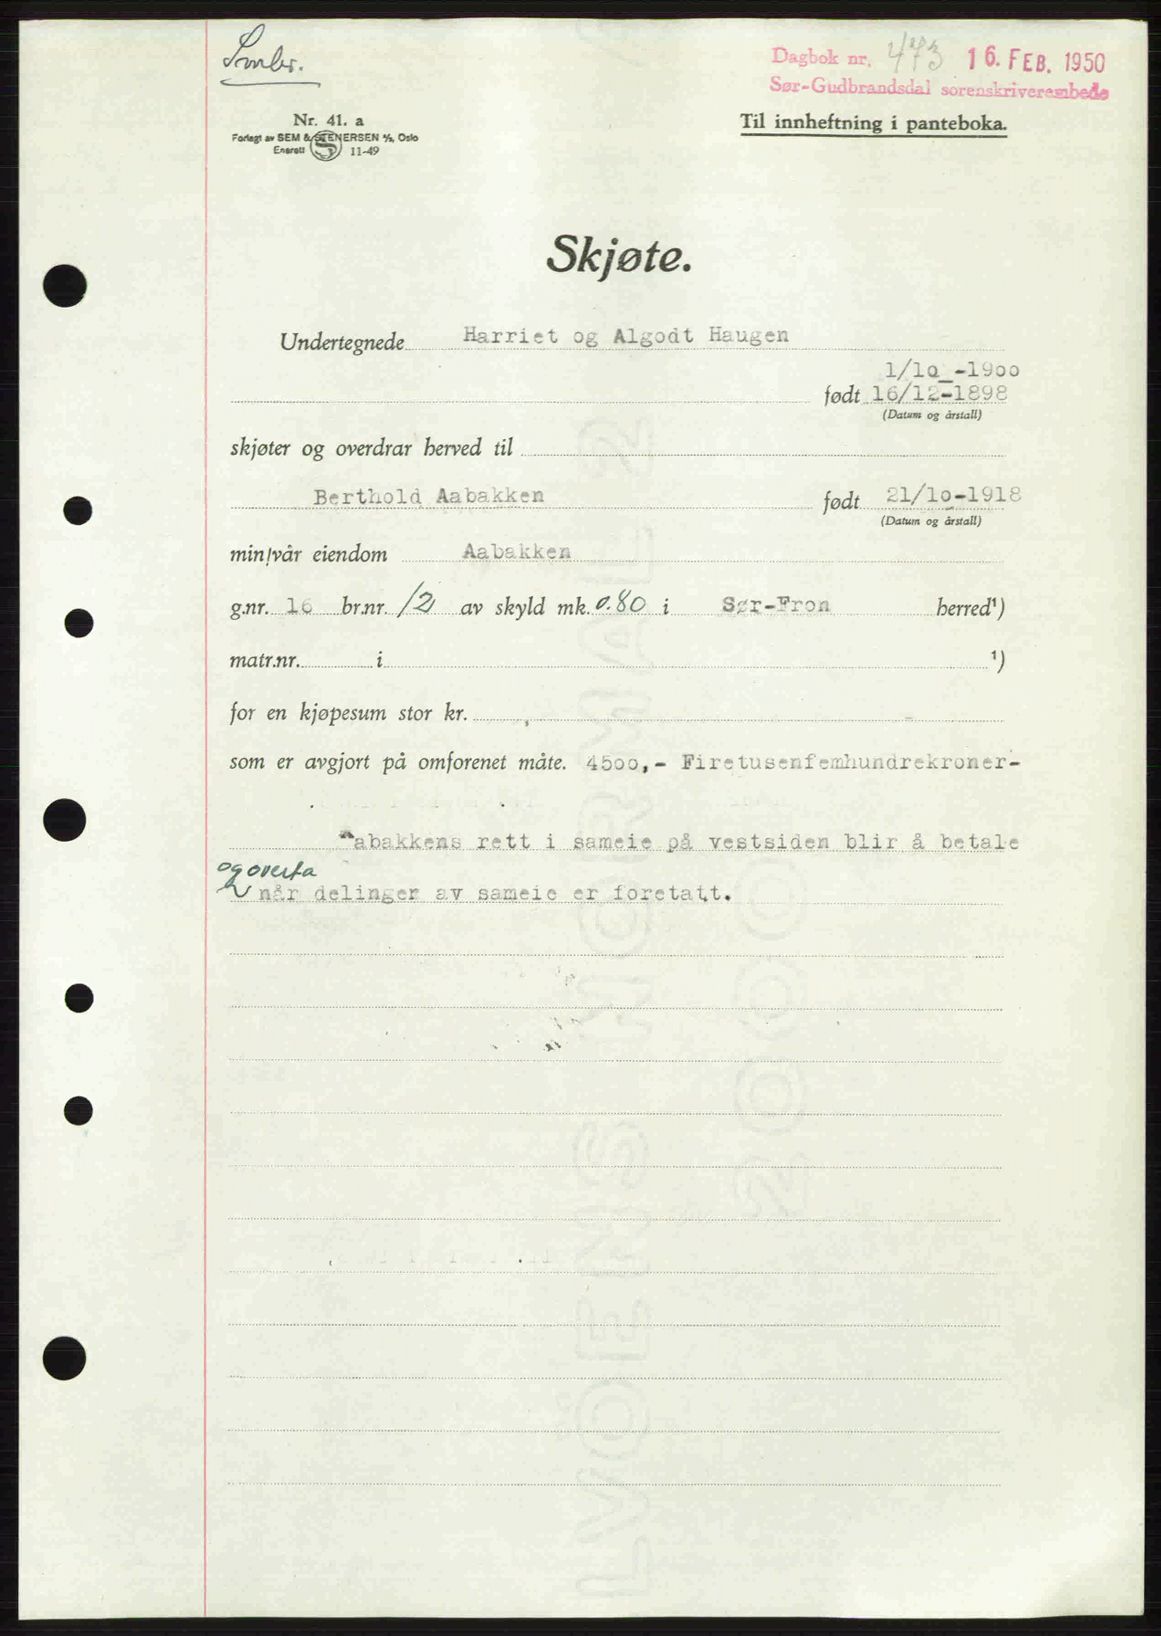 Dagbok nr. 473 16. FEB. 1950
Sør-Gudbrandsdal sorenskriverembede
Nr. 41. a
Forlagt av SEM & STENERSEN A/S, Oslo
Enerett 11-49
Til innheftning i panteboka.
Skjøte.
Undertegnede Harriet og Algodt Haugen
1/10 -1900
født 16/12-1898
(Datum og årstall)
skjøter og overdrar herved til
Berthold Aabakken født 21/10-1918
(Datum og årstall)
min/vår eiendom Aabakken
g.nr. 16 br.nr. 12 av skyld mk. 0.80 i Sør-Fron herred¹)
matr.nr. i ¹)
for en kjøpesum stor kr. ,
som er avgjort på omforenet måte. 4500,- Firetusenfemhundrekroner-
Aabakkens rett i sameie på vestsiden blir å betale
og overta
når delinger av sameie er foretatt.
LVÖENS NORMAL 2